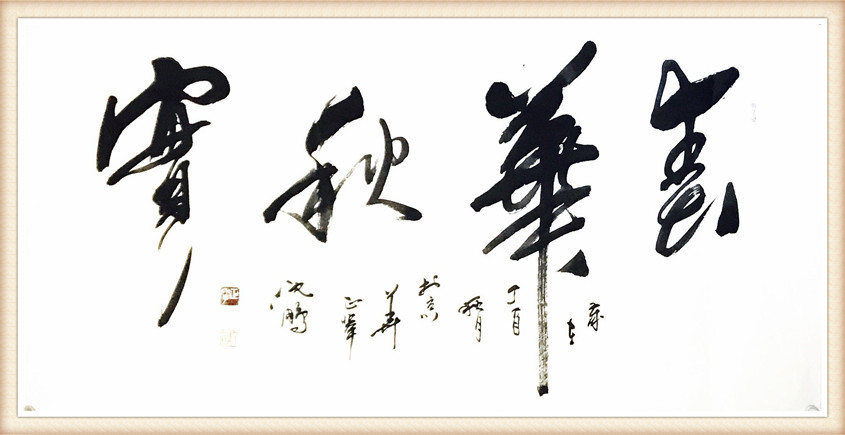 春華秋實
歲在
丁酉
秋月
於京
華
沈鵬